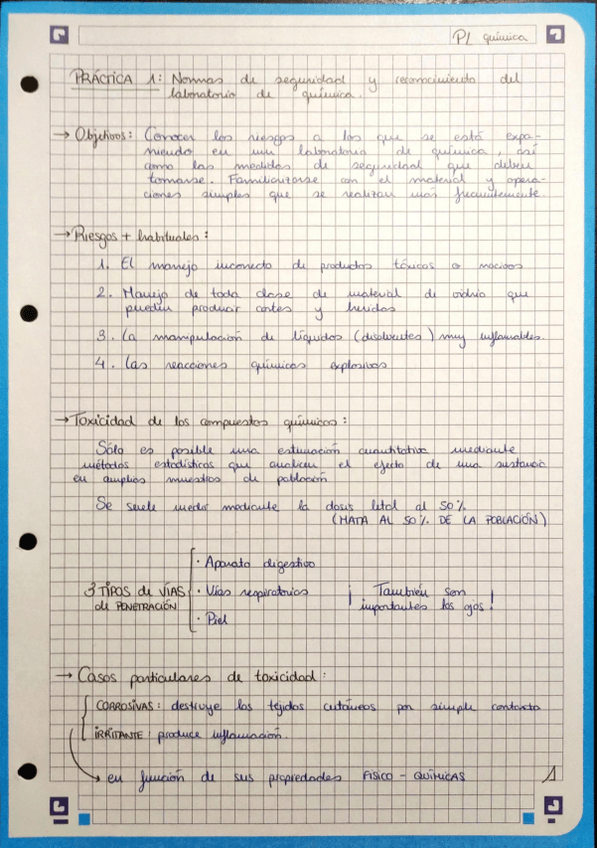 PL química
PRÁCTICA 1: Normas de seguridad y reconocimiento del
laboratorio de química.
→ Objetivos: Conocer los riesgos a los que se está expo-
niendo en un laboratorio de química, así
como las medidas de seguridad que deben
tomarse. Familiarizarse con el material y opera-
ciones simples que se realizan más frecuentemente
→ Riesgos + habituales:
1. El manejo incorrecto de productos tóxicos o nocivos
2. Manejo de toda clase de material de vidrio que
pueden producir cortes y heridas
3. La manipulación de líquidos (disolventes) muy inflamables.
4. Las reacciones químicas explosivas
→ Toxicidad de los compuestos químicos:
Sólo es posible una estimación cuantitativa mediante
métodos estadísticos que analicen el efecto de una sustancia
en amplias muestras de población
Se suele medir mediante la dosis letal al 50%
(MATA AL 50% DE LA POBLACIÓN)
3 TIPOS de VÍAS
de PENETRACIÓN
· Aparato digestivo
· Vías respiratorias
· Piel
¡También son
importantes los ojos!
→ Casos particulares de toxicidad:
CORROSIVAS: destruye los tejidos cutáneos por simple contacto
IRRITANTE: produce inflamación.
→ en función de sus propiedades FISICO-QUÍMICAS
1